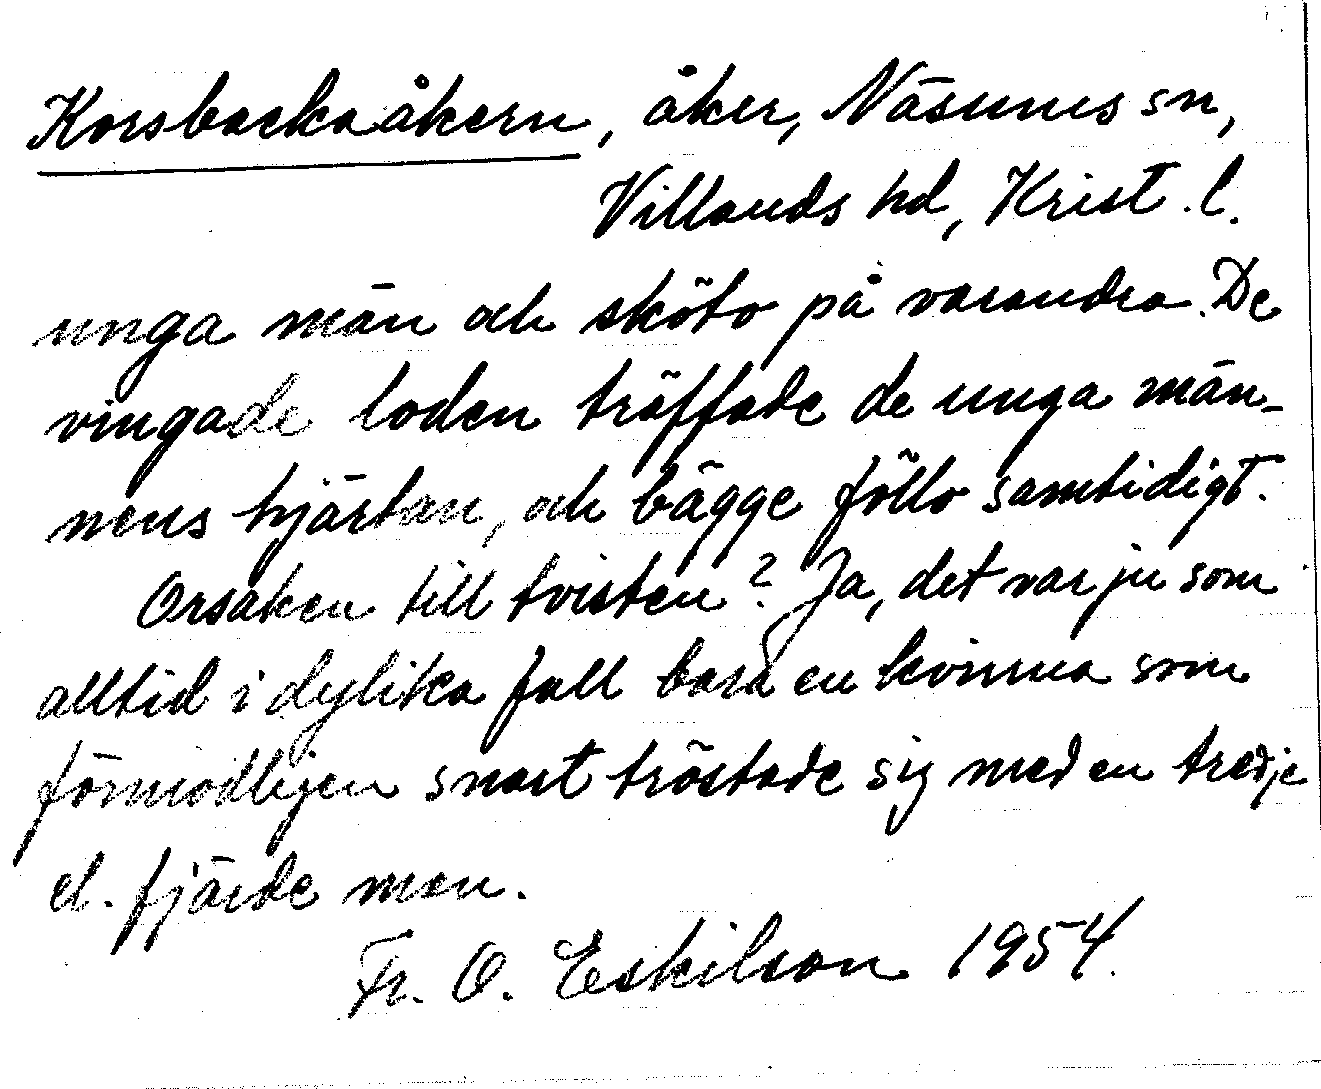 Korsbackaåkern, åker, Näsums sn,
Villands hd, Krist. l.
unga män och sköto på varandra. De
vingade loden träffade de unga män-
nens hjärtan, och bägge föllo samtidigt.
Orsaken till tvisten? Ja, det var ju som
alltid i dylika fall bara en kvinna som
förmodligen snart tröstade sig med en tredje
el. fjärde man.
Fr. O. Eskilson 1954.